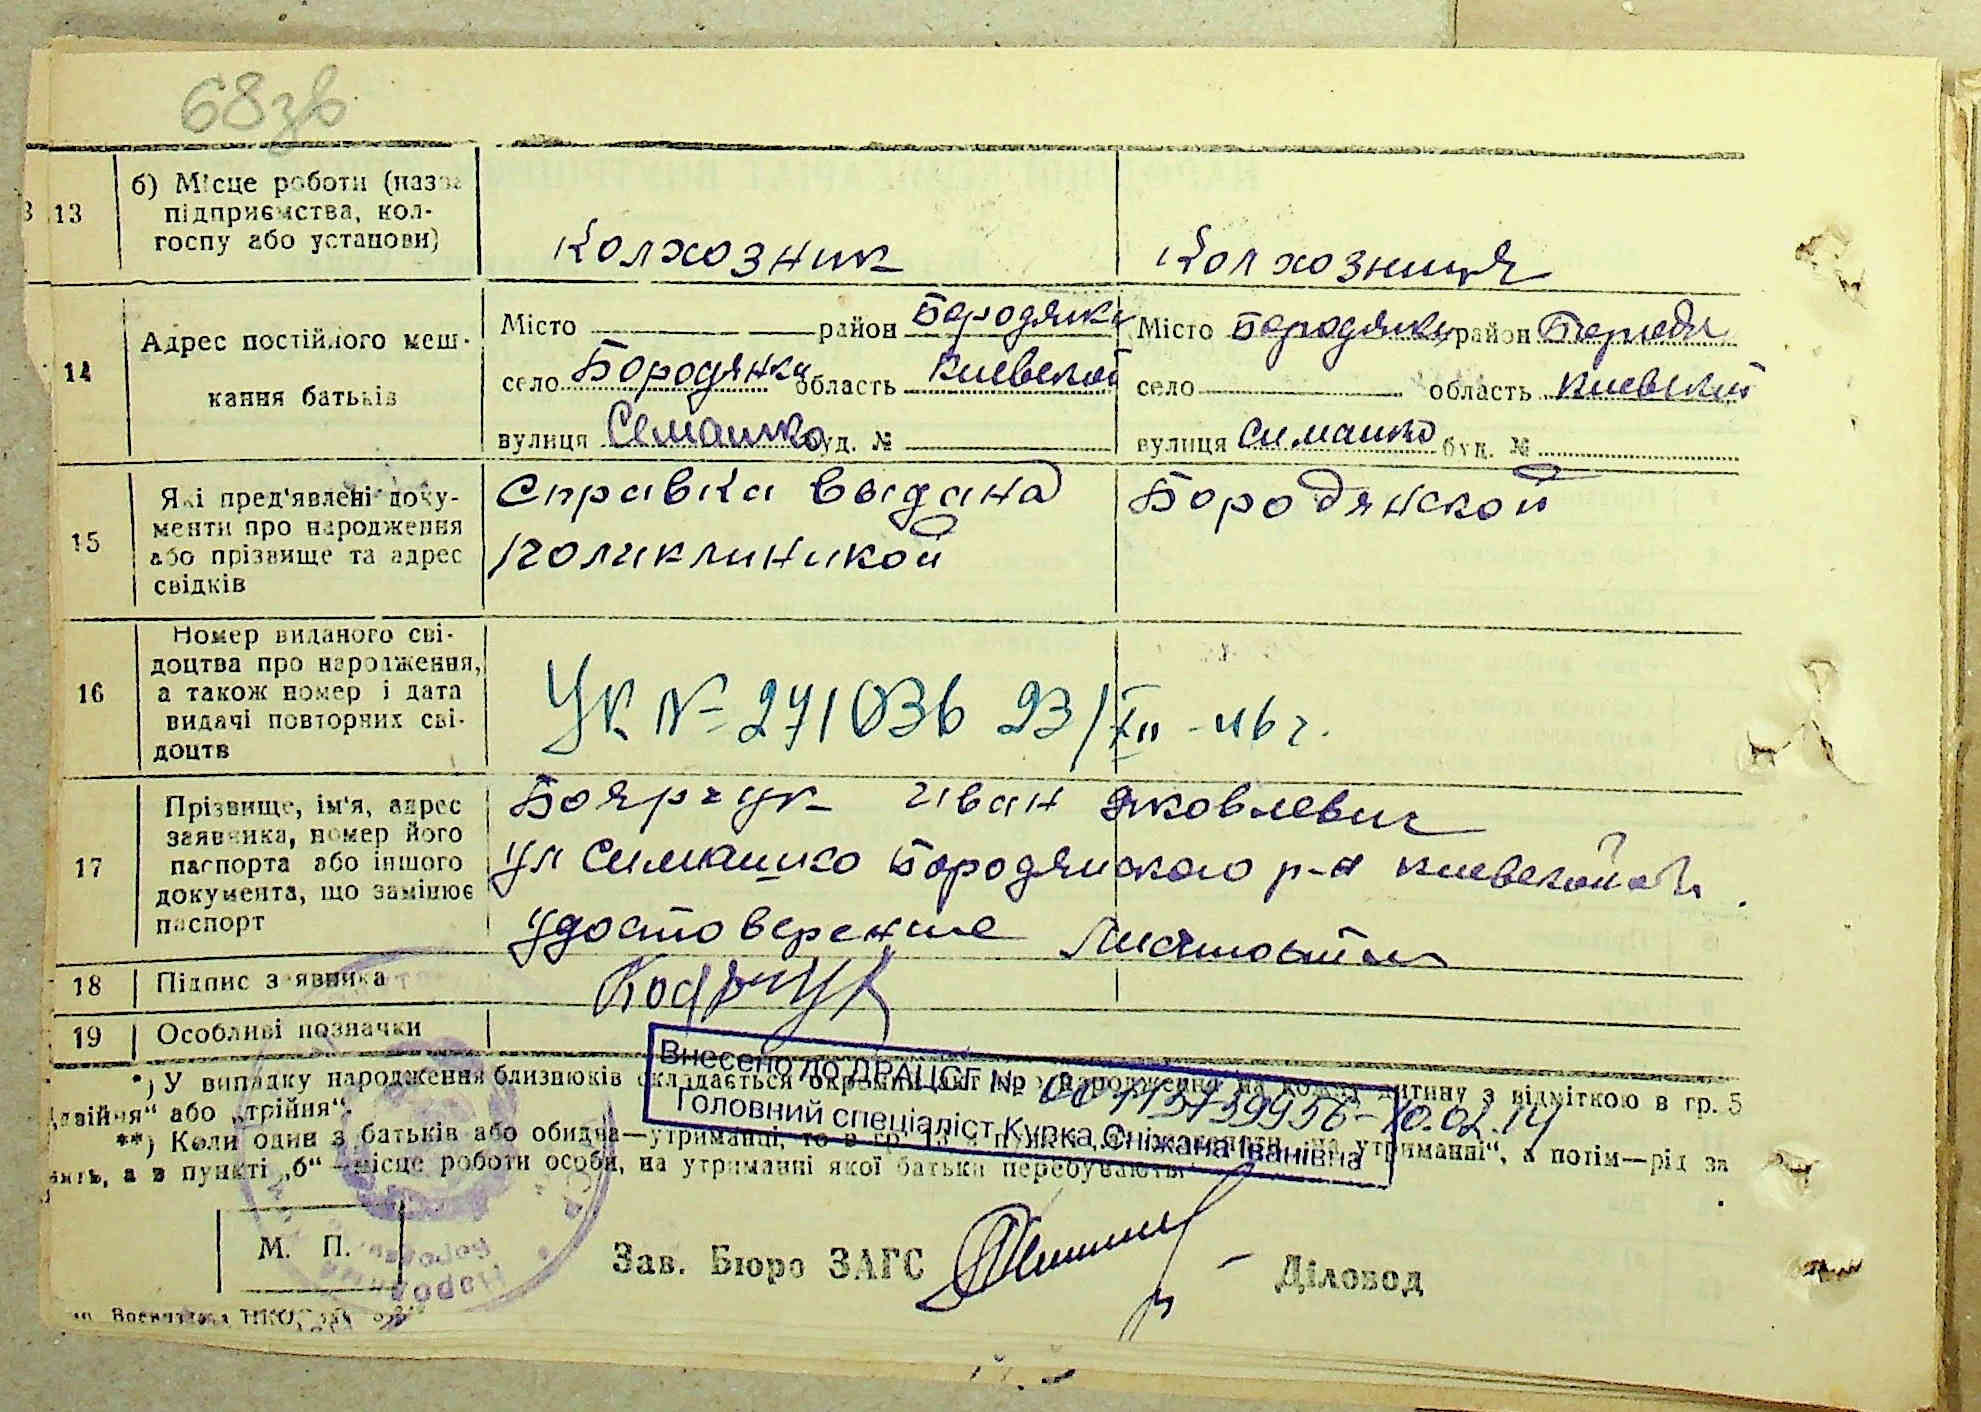 68зв
13
б) Місце роботи (назва
підприємства, кол-
госпу або установи)
Колхозник
Колхозниця
14
Адрес постійного меш-
кання батьків
Місто район Бородянка
село Бородянка область Киевской
вулиця Семашко буд. №
Місто Бородянка район Бородя
село область Киевской
вулиця Симашко буд. №
15
Які пред'явлені доку-
менти про народження
або прізвище та адрес
свідків
Справка выдана Бородянской
поликлиникой
16
Номер виданого сві-
доцтва про народження,
а також номер і дата
видачі повторних сві-
доцтв
УК № 271036 23/XII-46 г.
17
Прізвище, ім'я, адрес
заявника, номер його
паспорта або іншого
документа, що замінює
паспорт
Боярчук Иван Яковлевич
ул Симашко Бородянского р-н Киевской об
удостоверение
18 Підпис заявника
19 Особливі позначки
*) У випадку народження близнюків складається окремий акт про народження на кожну дитину з відміткою в гр. 5
„двійня“ або „трійня“.
**) Коли один з батьків або обидва—утриманці, то в гр. утриманні“, а потім—рід за
а в пункті „б“—місце роботи особи, на утриманні якої батьки перебувають.
Внесено до ДРАЦСГ № 00113739956-10.02.14
Головний спеціаліст Курка Сніжана Іванівна
М. П.
Зав. Бюро ЗАГС
Діловод